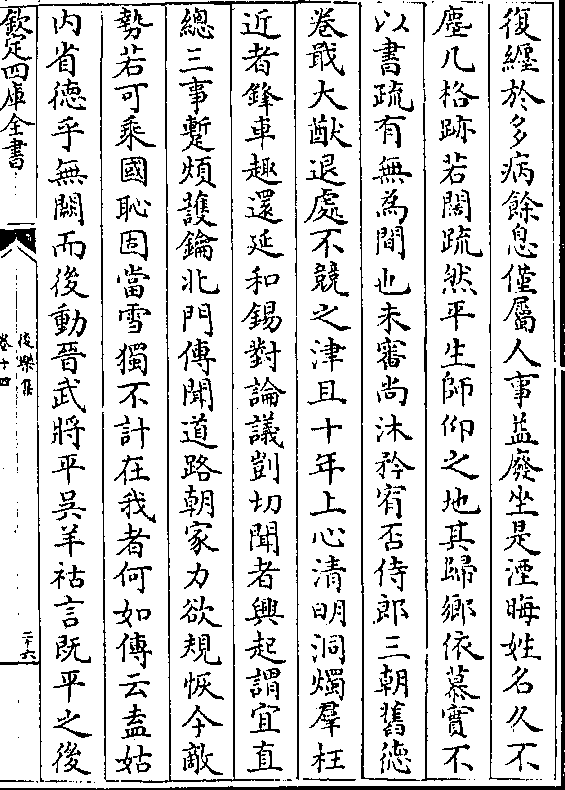 復纏於多病餘息僅屬人事益廢坐是湮晦姓名久不
塵几格跡若闊疏然平生師仰之地其歸鄉依慕實不
以書疏有無為間也未審尚沐矜宥否侍郎三朝舊徳
巻戢大猷退處不競之津且十年上心清明洞燭羣枉
近者鋒車趣還延和錫對論議剴切聞者興起謂宜直
總三事蹔煩護鑰北門傳聞道路朝家力欲規恢今敵
勢若可乘國恥固當雪獨不計在我者何如傳云盍姑
内省徳乎無闕而後動晉武將平吳羊祜言既平之後
欽定四庫全書
後樂集
卷十四
二十六